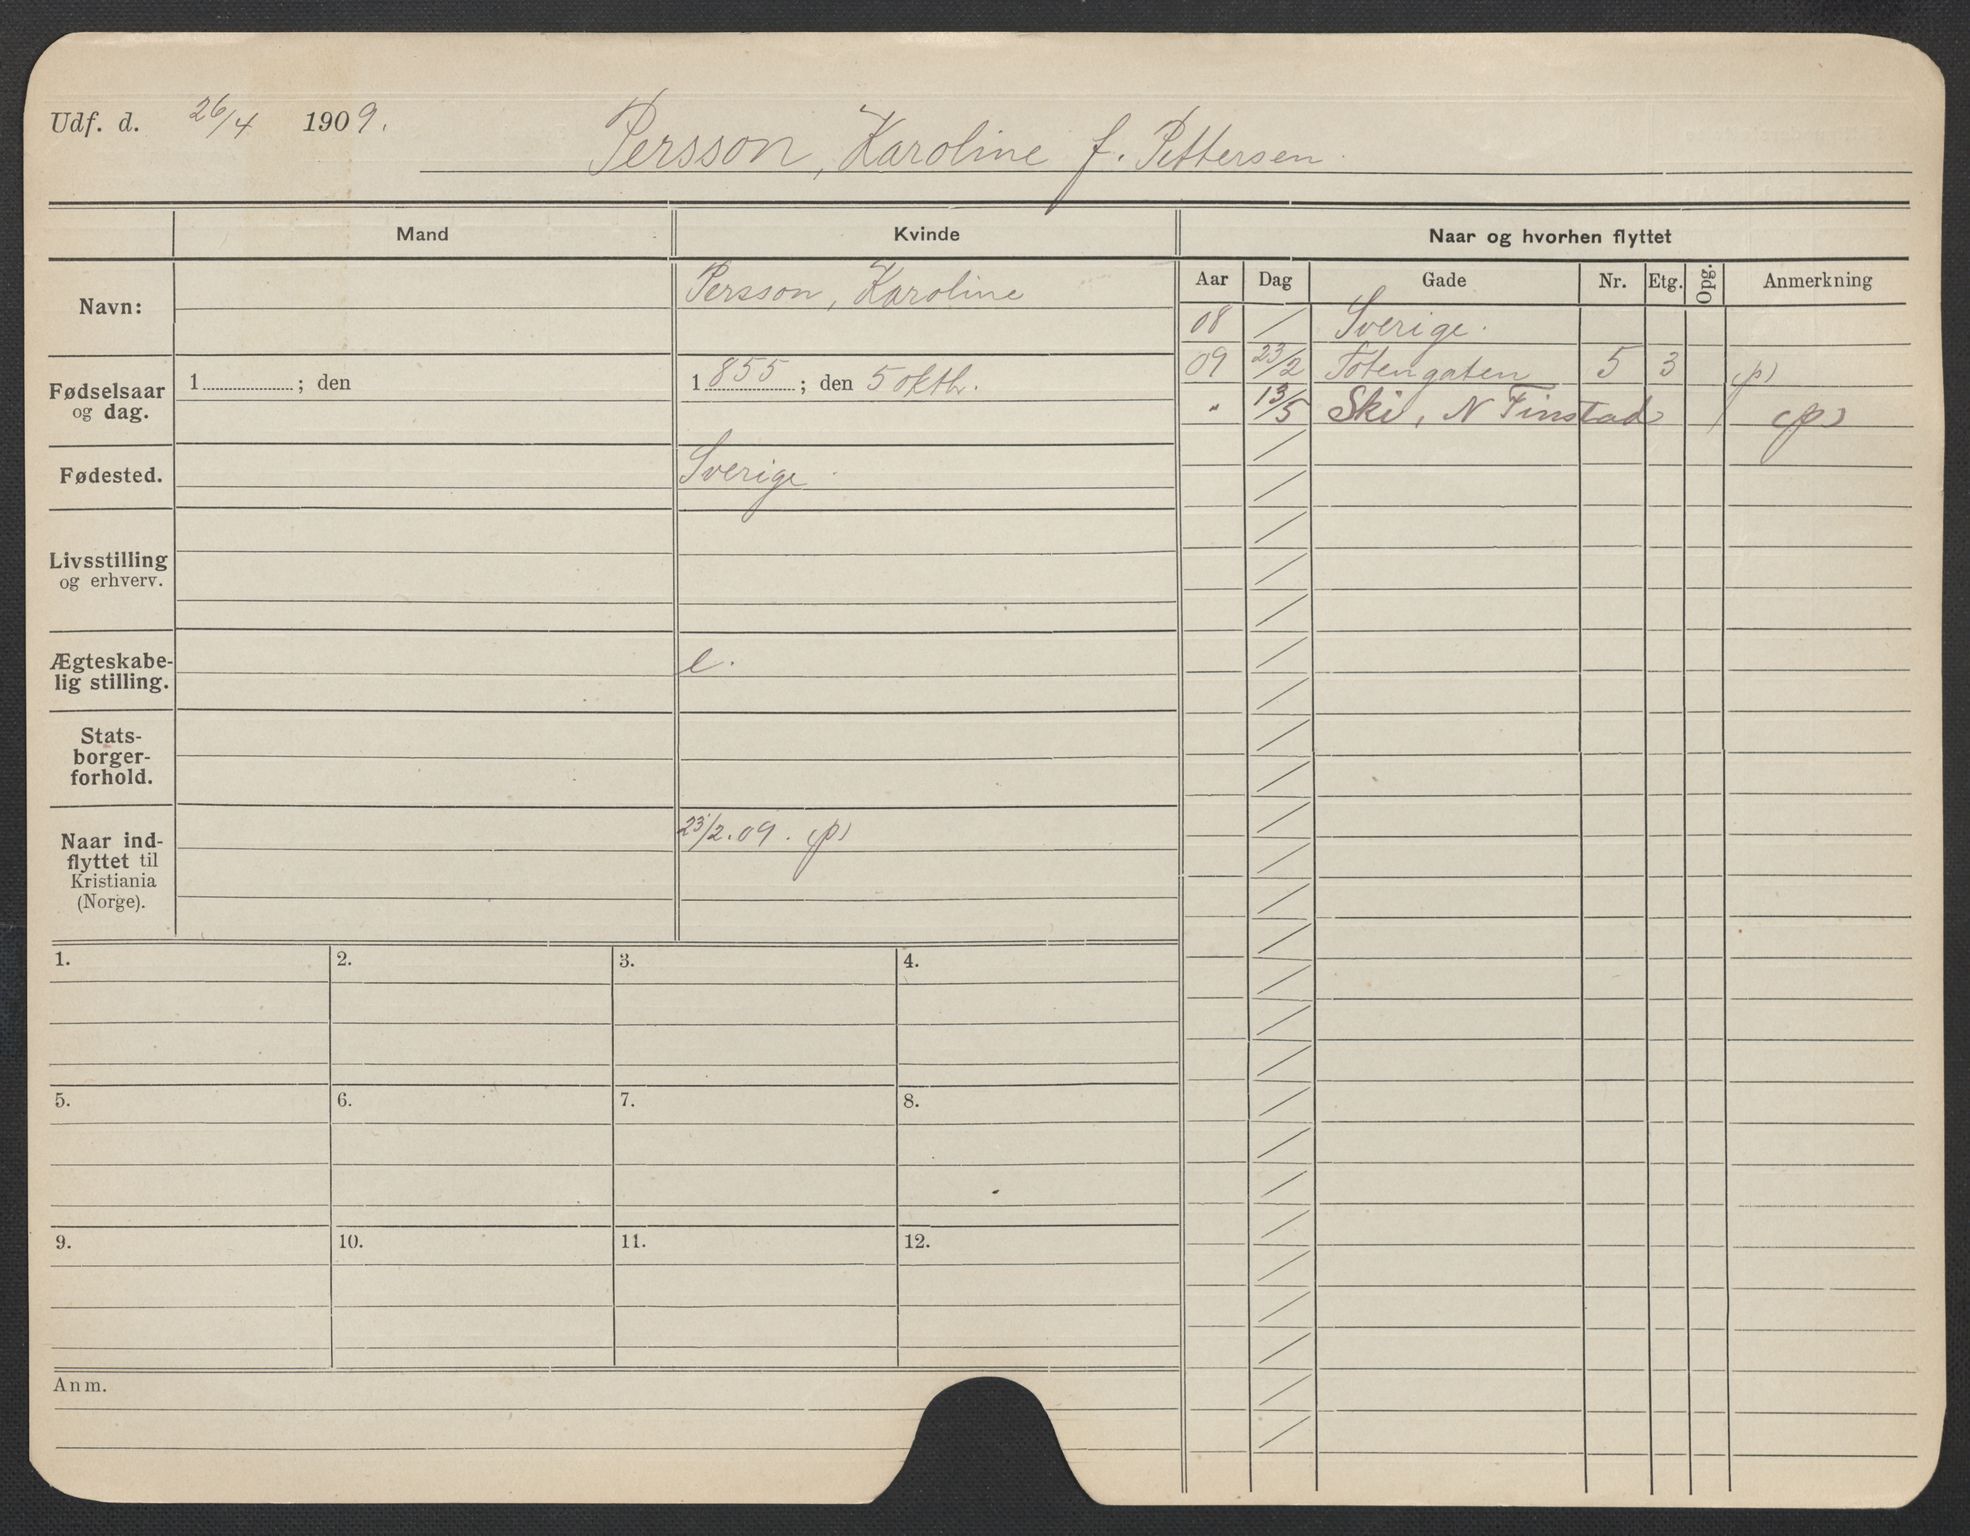 Udf. d. 26/4 1909.
Persson, Karoline f. Pettersen.
Mand
Kvinde
Naar og hvorhen flyttet
Aar Dag Gade Nr. Etg. Opg. Anmerkning
Navn:
Persson, Karoline
08 / Sverige.
09 23/2 Totengaten 5 3 (p)
" 13/5 Ski, N Finstad (p)
Fødselsaar
og dag.
1 ; den
1855; den 5 oktbr.
Fødested.
Sverige
Livsstilling
og erhverv.
Ægteskabe-
lig stilling.
e.
Stats-
borger-
forhold.
Naar ind-
flyttet til
Kristiania
(Norge).
23/2.09. (p)
1. 2. 3. 4.
5. 6. 7. 8.
9. 10. 11. 12.
Anm.